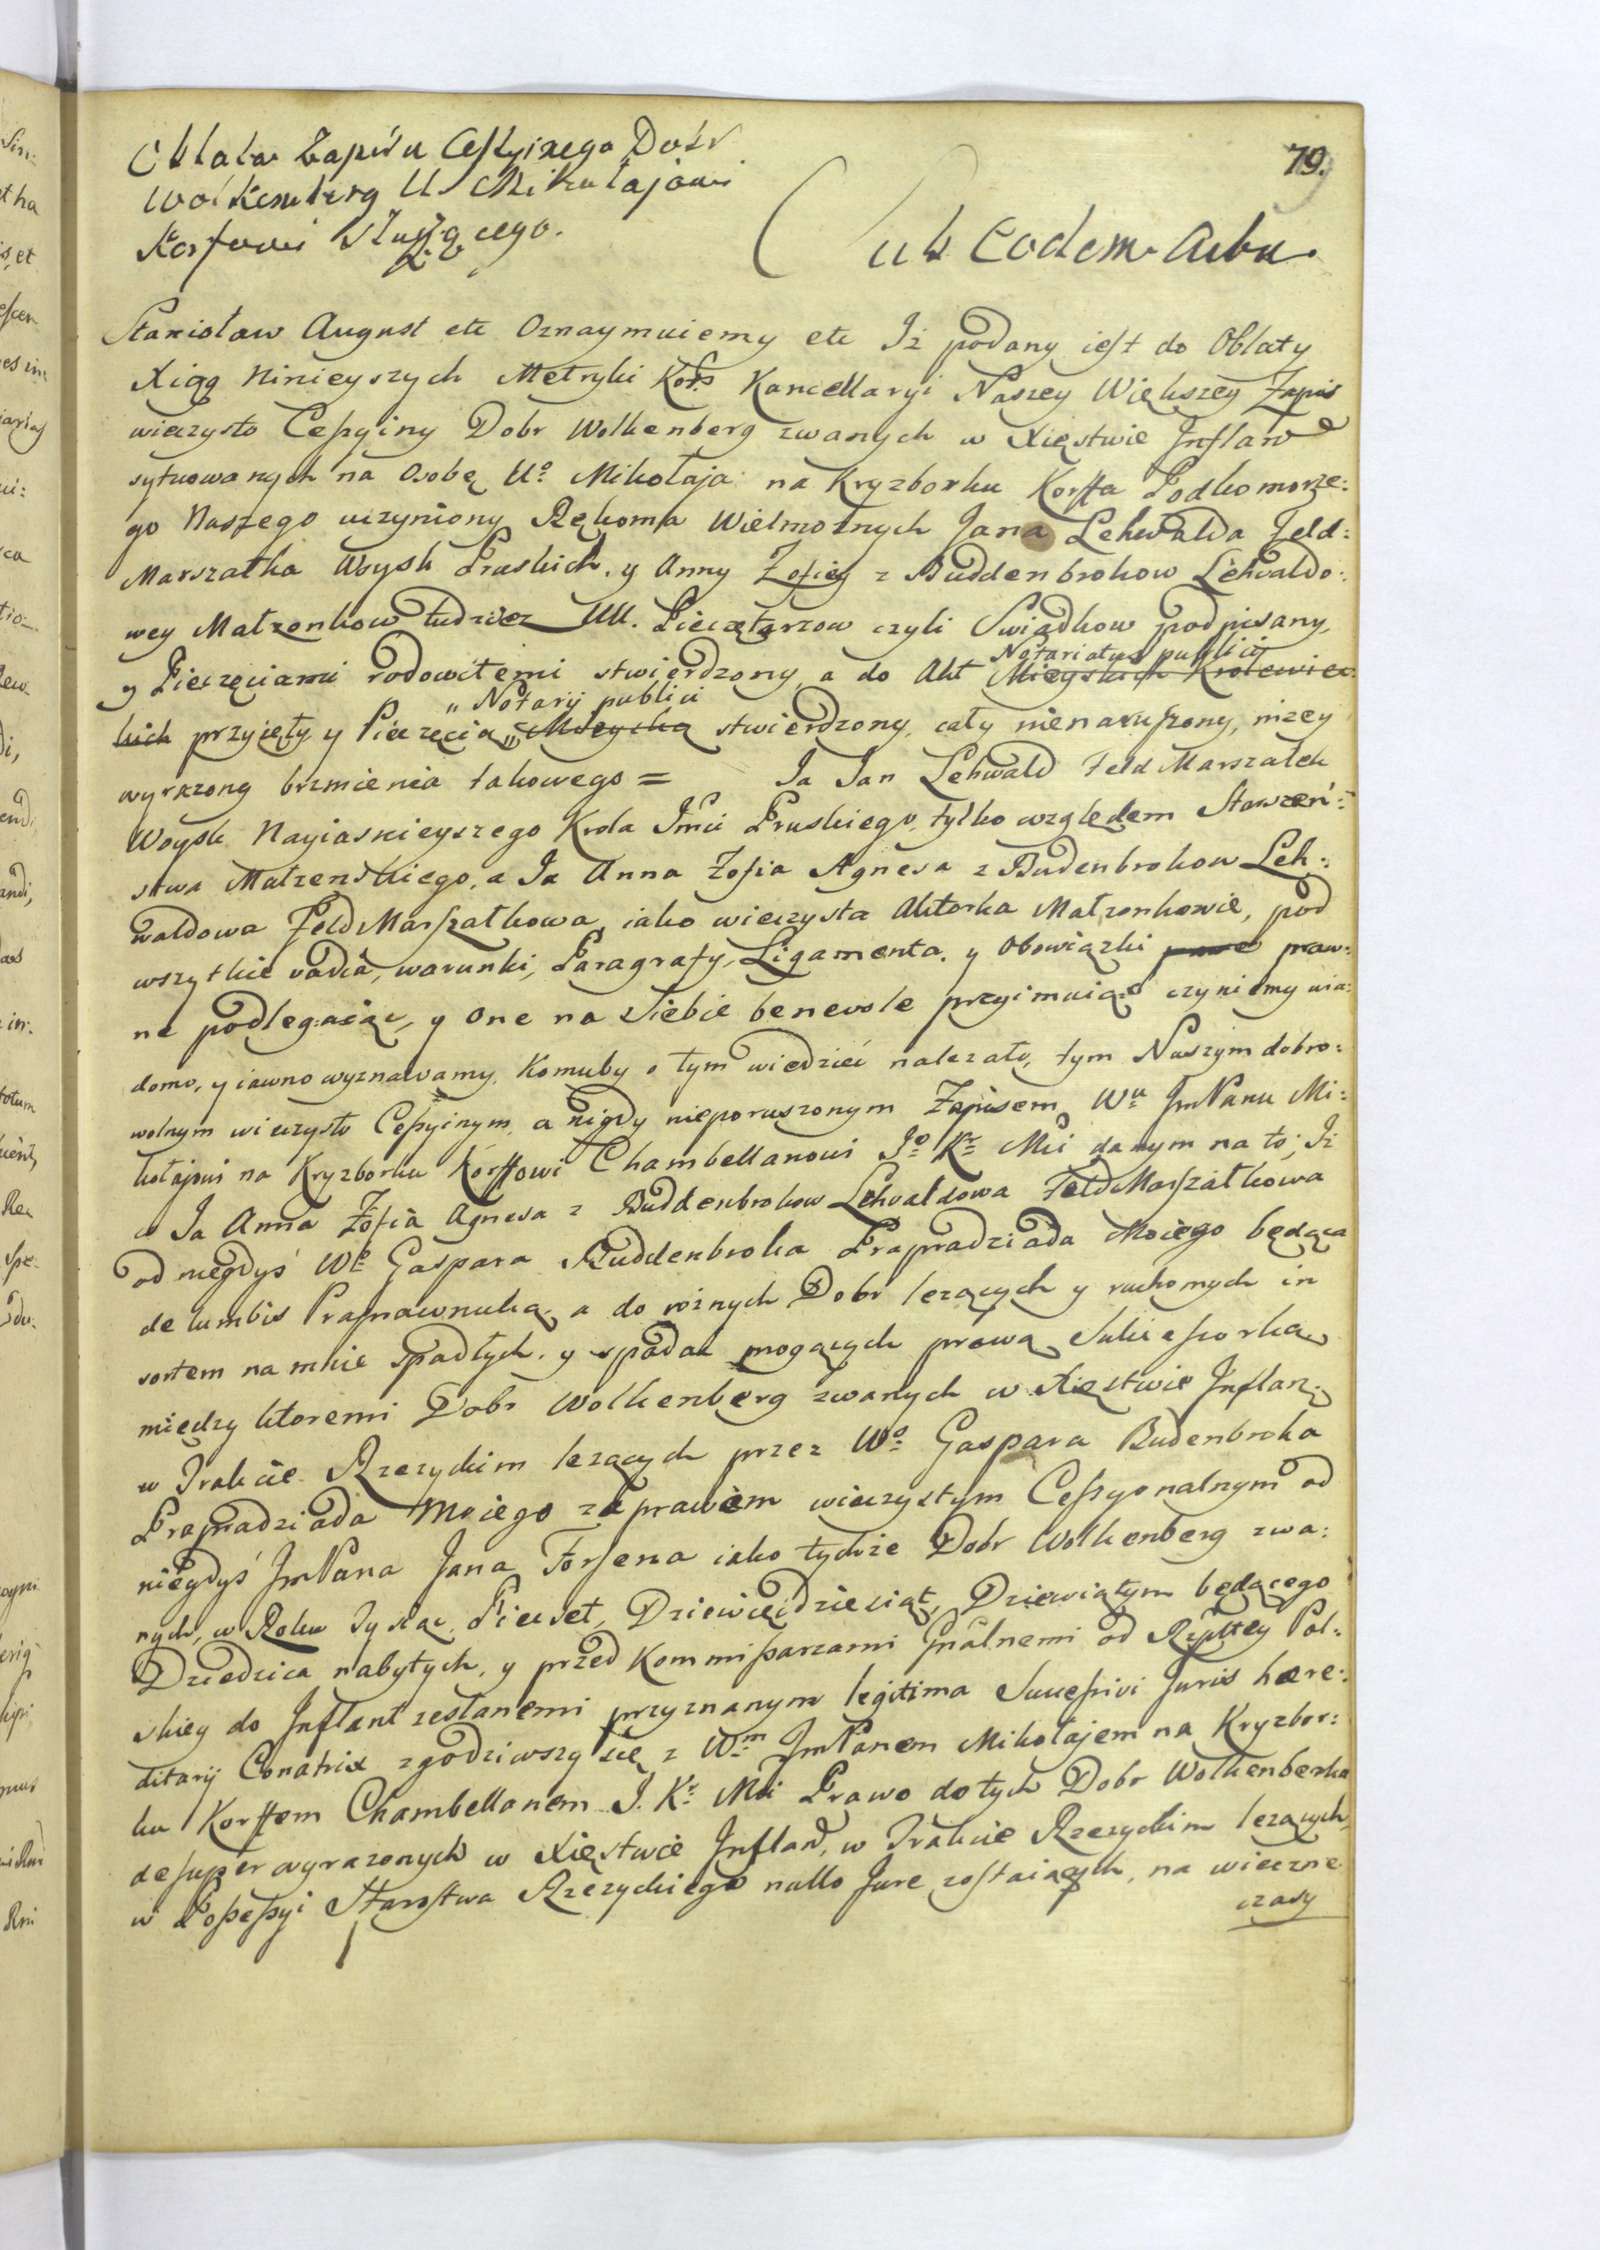 Oblata Zapisu Cessyinego Dobr
Wolkemberg U. Mikołajowi
Korfowi służącego.
79.
Sub Eodem Actu.
Stanisław August etc Oznaymuiemy etc Iż podany iest do Oblaty
Xiąg Ninieyszych Metryki Kor. Kancellaryi Naszey Większey Zapis
wieczysto Cessyiny Dobr Wolkenberg zwanych w Xięstwie Inflan
sytuowanych na Osobę Uo Mikołaja na Kryzborku Korffa Podkomorze:
go Naszego uczyniony Rękoma Wielmożnych Jana Lehwalda Feld:
Marszałka Woysk Pruskich, y Anny Zofiey z Buddenbrokow Lehwaldo:
wey Małzonkow tudziez UU. Pieczętarzow czyli Swiadkow podpisany,
Notariatus publici
y Pieczęciami rodowitemi stwierdzony, a do Akt Mieyskich Krolewiec:
„ Notarij publici
kich przyięty y Pieczęcią „ Mieyską stwierdzony, cały nienaruszony, niżey
wyrazony brzmienia takowego = Ja Jan Lehwald Feld Marszałek
Woysk Nayiasnieyszego Krola Jmci Pruskiego, tylko względem Stawzeń:
stwa Małzenskiego, a Ja Anna Zofia Agnesa z Budenbrokow Leh:
waldowa Feld Marszałkowa, iako wieczysta Aktorka Małzonkowie, pod
wszytkie vadia, warunki, Paragrafy, Ligamenta, y Obowiązki prawe praw:
ne podlegaiąc, y One na Siebie benevole przyimuiąc czyniemy wia:
domo, y iawno wyznawamy, Komuby o tym wiedzieć nalezało, tym Naszym dobro:
wolnym wieczysto Cessyinym, a nigdy nieporuszonym Zapisem, Wu JmPanu Mi:
kołajowi na Kryzborku Korffowi Chambellanowi Jo Kr Mci danym na to; Iż
Ja Anna Zofia Agnesa z Buddenbrokow Lehwaldowa Feld Marszałkowa
od niegdyś Wo Gaspara Buddenbroka Prapradziada Moiego będąca
de lumbis Praprawnuką, a do rożnych Dobr lezących y ruchomych in
sortem na mnie spadłych, y spadać mogących prawą Sukcessorką
między ktoremi Dobr Wolkenberg zwanych w Xięstwie Inflan:
w Trakcie Rzezyckim lezących przez Wo Gaspara Budenbroka
Prapradziada Moiego za prawem wieczystym Cessyonalnym od
niegdyś JmPana Jana Forsena iako tychże Dobr Wolkenberg zwa:
nych, w Roku Tysiąc Piecset, Dziewięcdziesiąt, Dziewiątym będącego
Dziedzica nabytych, y przed Kommissarzami Gnalnemi od Rzpltey Pol:
skiey do Inflant zesłanemi przyznanym legitima Sucessivi Juris hære:
ditarij Conatrix zgodziwszy się z Wm JmPanem Mikołajem na Kryzbor:
ku Korffem Chambellanem J. Kr Mci Prawo do tych Dobr Wolkenberka
desuper wyrazonych w Xięstwie Inflan, w Trakcie Rzezyckim lezących,
w Possessyi Starostwa Rzezyckiego nullo Jure zostaiących, na wieczne
czasy